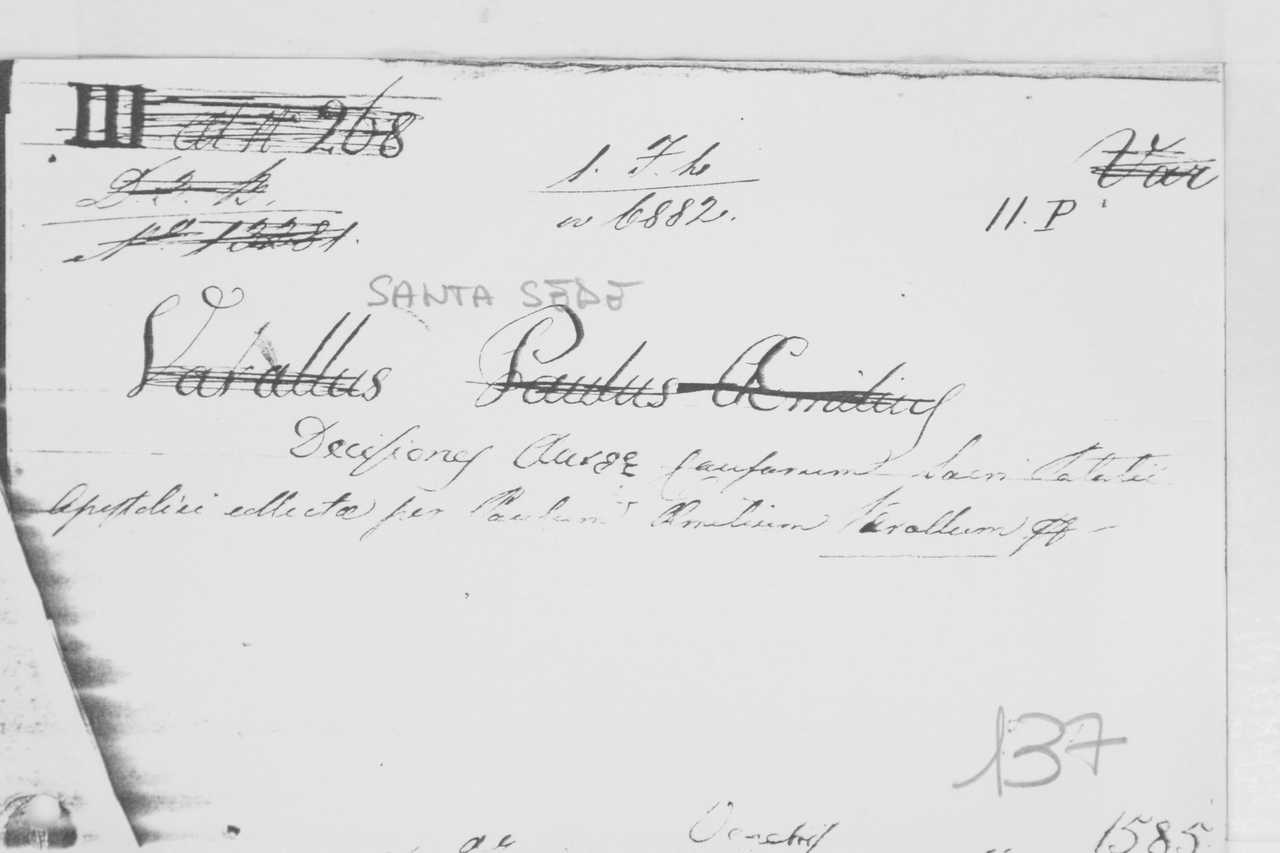 III ad nº 268
Var
D. I. B.
nº 13281.
1. F. h
w 6882.
11. P
SANTA SEDE
Varallus Paulus Æmilius
Decisiones Aureæ causarum Sacri Palatii
Apostolici collectæ per Paulum Æmilium Verallum
137
Venetiis
1585.